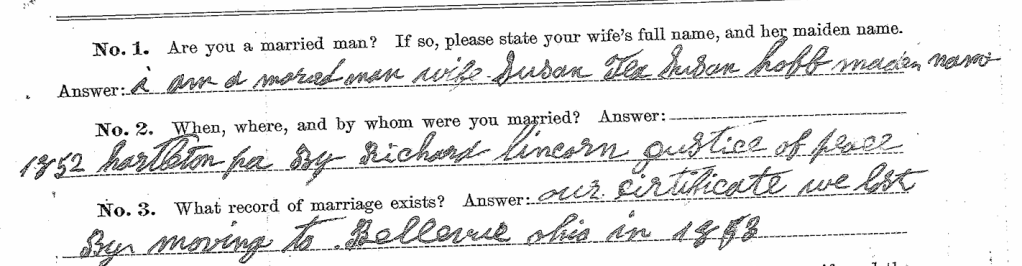 No. 1. Are you a married man? If so, please state your wife's full name, and her maiden name.
Answer: i am a maried man wife Susan Tea Susan hoff maden name
No. 2. When, where, and by whom were you married? Answer:
1852 hartleton pa By Richard lincorn gustice of peace
No. 3. What record of marriage exists? Answer: our cirtificate we lost
By moving to Bellevue ohio in